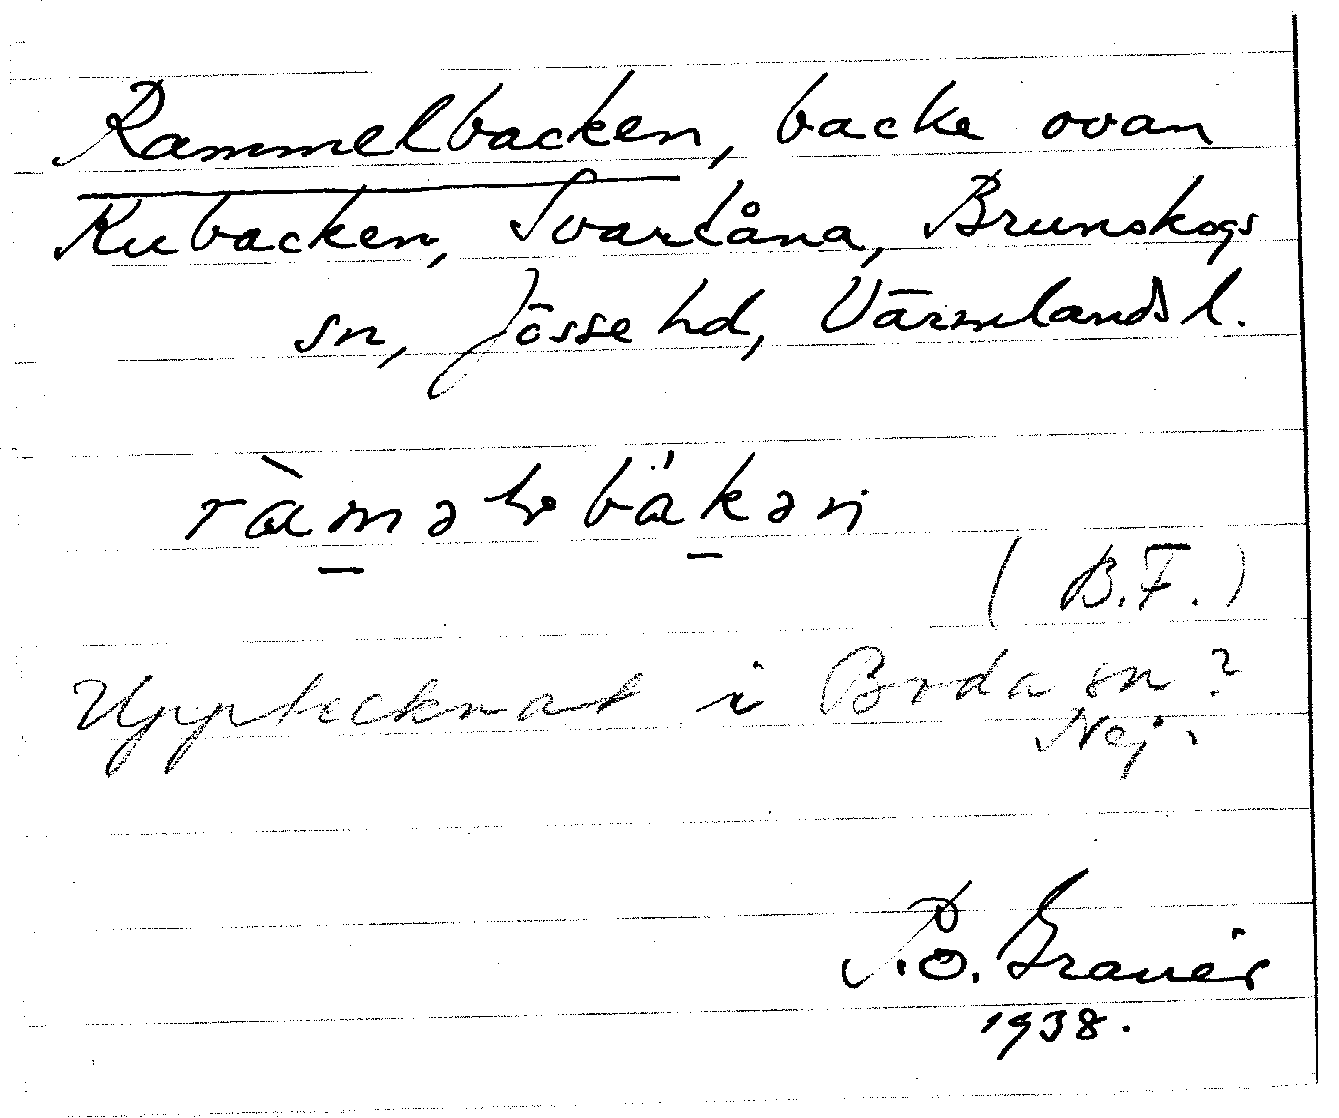 Rammelbacken, backe ovan
Kubacken, Svartåna, Brunskogs
sn, Jösse hd, Värmlands l.
(B.F.)
Upptecknat i Boda sn?
Nej.
P.O. Granér
1938.